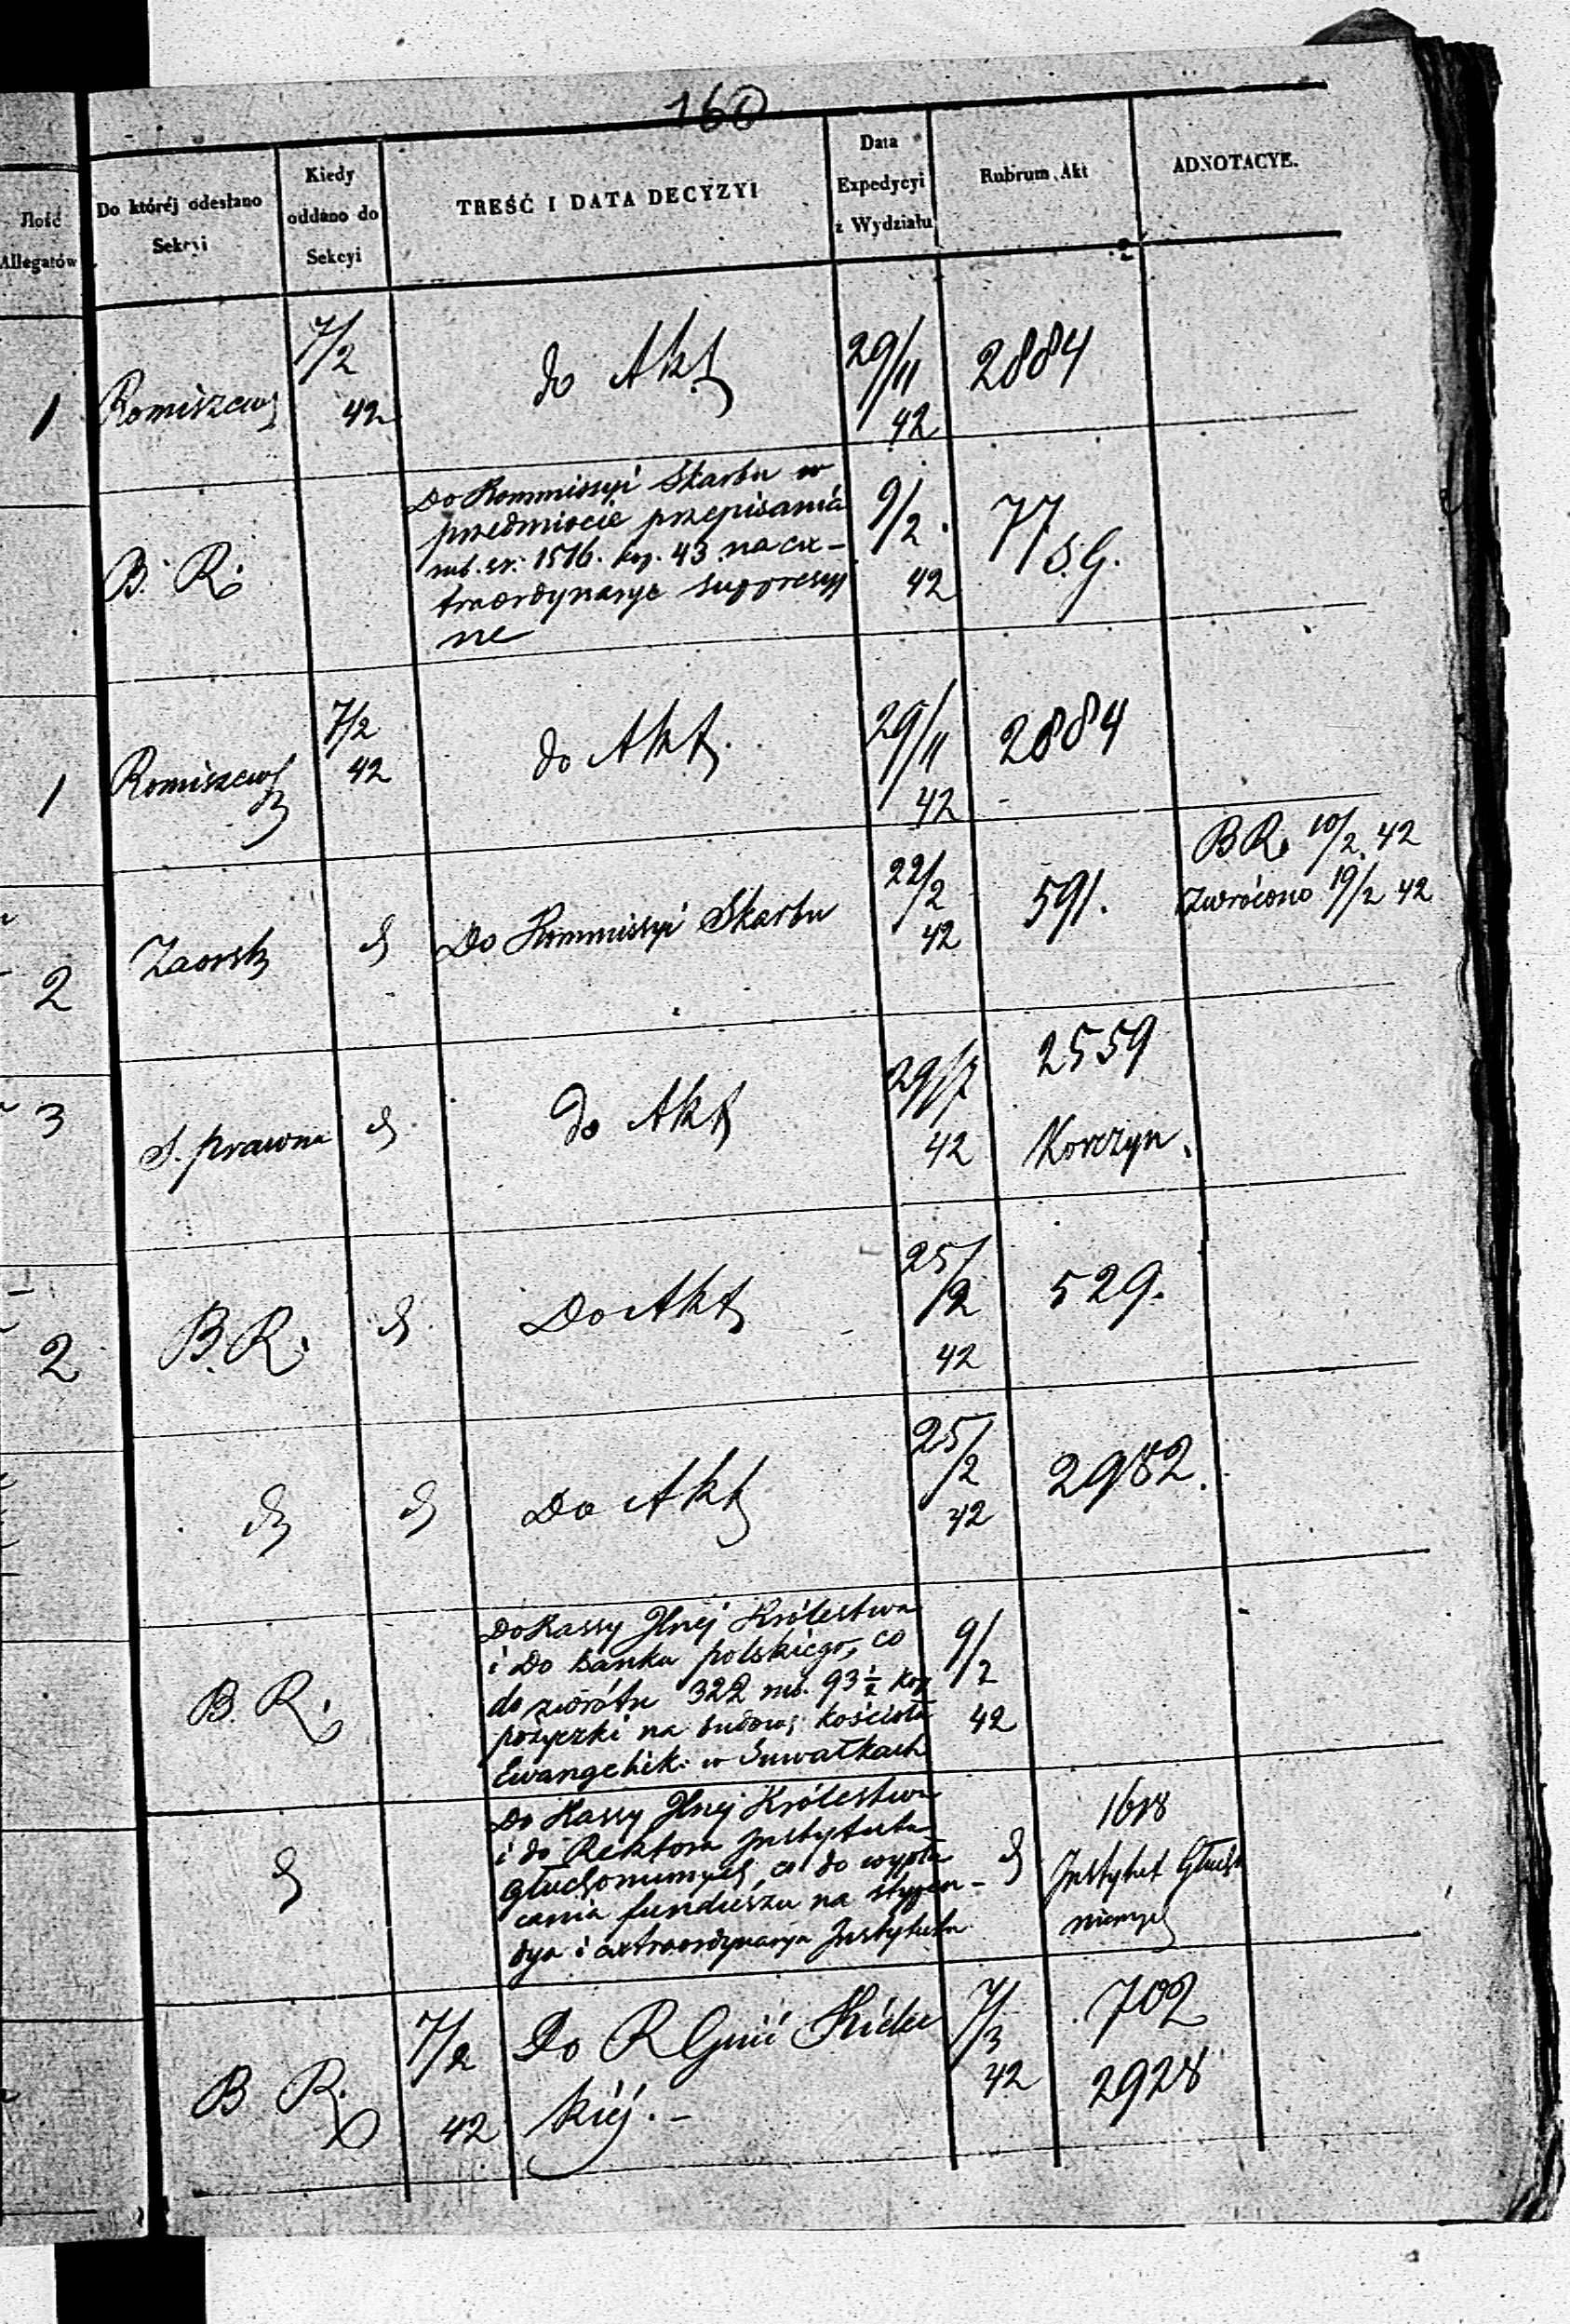 160
Ilość
Allegatów
Do któréj odesłano
Sekcyi
Kiedy
oddano do
Sekcyi
TREŚĆ I DATA DECYZYI
Data
Expedycyi
z Wydziału
Rubrum Akt
ADNOTACYE.
1
Romiszews
7/2
42
do Akt
29/11
42
2884
B. R.
Do Kommissyi Skarbu w
przedmiocie przepisania
rub. sr. 1516. kop. 43 na ex-
traordynarye suppressyj
ne
9/2.
42
77 S.G.
1
Romiszews
7/2
42
do Akt.
29/11
42
2884
2
Zaorsk
d
Do Kommissyi Skarbu
22/2
42
591.
B R. 10/2 42
Zwrócono 19/2 42
3
S. prawna
d
do Akt
29/7
42
2559
Korczyn.
2
B. R.
d
Do Akt
25/2
42
529.
d
d
Do Akt
25/2
42
2982.
B. R.
Do Kassy Głnej Królestwa
i do Banku polskiego, co
do zwrótu 322 rub. 93 1/2 kop
pożyczki na budowę kościoła
Ewangelick: w Suwałkach
9/2
42
d
Do Kassy Głnej Królestwa
i do Rektora Instytutu
Głuchoniemych, co do wypła
cania funduszu na stypen-
dya i extraordynarya Instytutu
d
1618
Instytut Głucho
niemych
B R.
7/2
42
Do R Gub Kielec
kiéj. -
7/3
42
702
2928